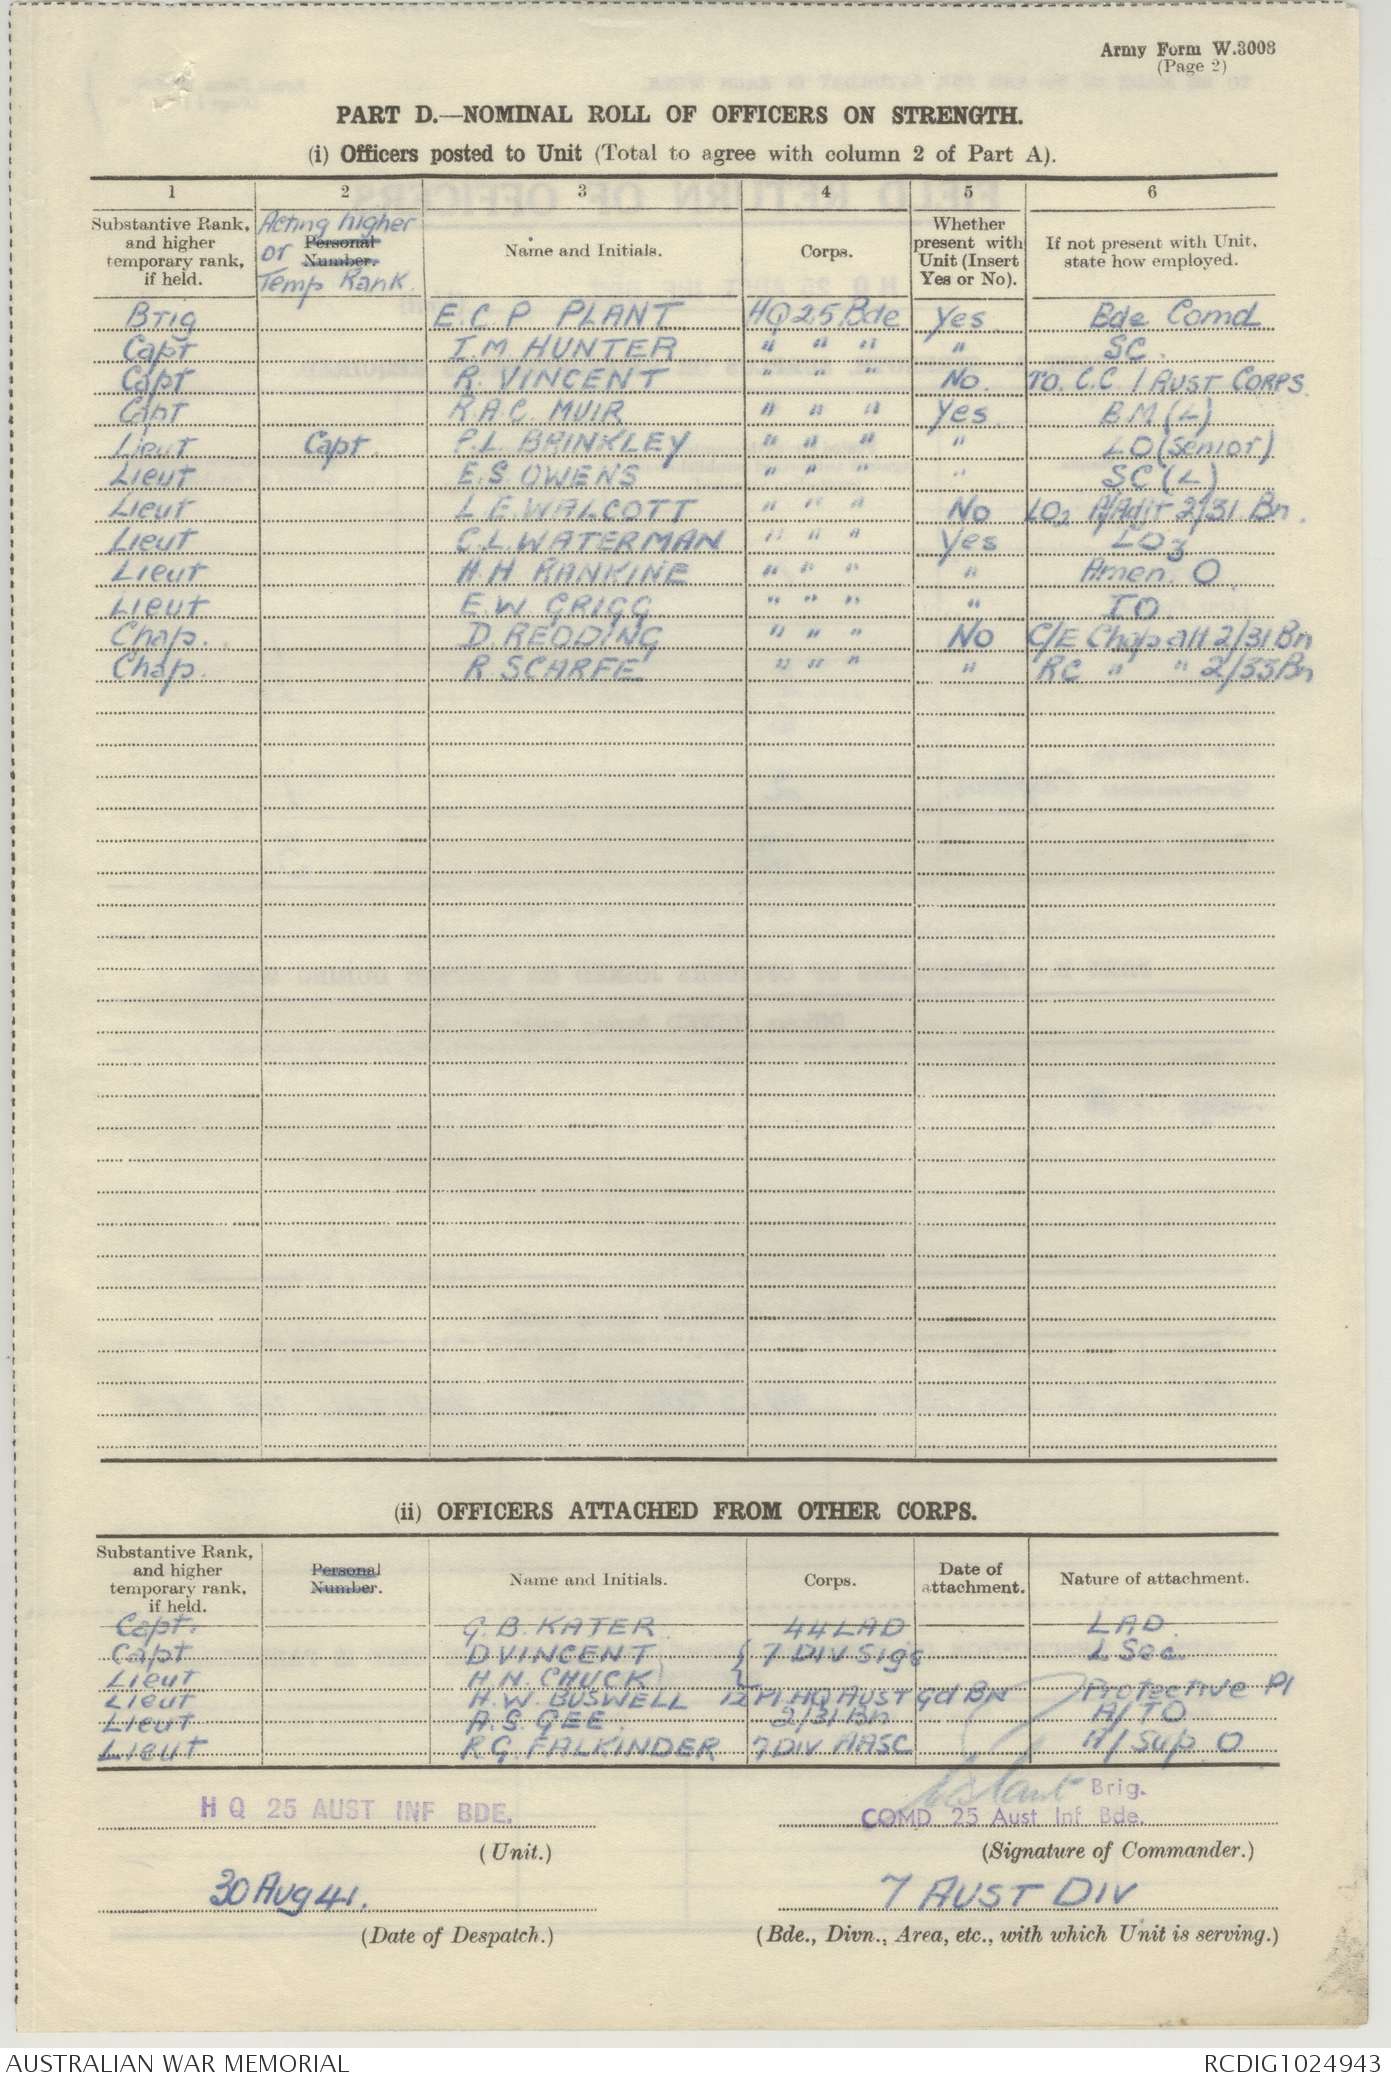 Army Form W.3008
(Page 2)
PART D.—NOMINAL ROLL OF OFFICERS ON STRENGTH.
(i) Officers posted to Unit (Total to agree with column 2 of Part A).
1 2 3 4 5 6
Substantive Rank, and higher temporary rank, if held.
Acting higher or Personal Number. Temp Rank.
Name and Initials.
Corps.
Whether present with Unit (Insert Yes or No).
If not present with Unit, state how employed.
Brig E.C.P PLANT HQ 25 Bde Yes Bde Comd
Capt I.M. HUNTER " " " " SC.
Capt R. VINCENT " " " No. TO. C.C 1 AUST CORPS
Capt R.A.C. MUIR " " " Yes B.M (L)
Lieut Capt. P.L. BRINKLEY " " " " LO (Senior)
Lieut E.S. OWENS " " " " SC (L)
Lieut L.E. WALCOTT " " " No LO2 A/Adjt 2/31 Bn.
Lieut C.L. WATERMAN " " " Yes LO3
Lieut H.H RANKINE " " " " Amen. O.
Lieut E.W GRIGG " " " " IO.
Chap. D. REDDING " " " No C/E Chap att 2/31 Bn
Chap. R. SCARFE " " " " RC " " 2/33 Bn
(ii) OFFICERS ATTACHED FROM OTHER CORPS.
Substantive Rank, and higher temporary rank, if held.
Personal Number.
Name and Initials.
Corps.
Date of attachment.
Nature of attachment.
Capt. G.B. KATER 44 LAD LAD.
Capt D VINCENT 7 DIV Sigs L Sec.
Lieut H.N. CHUCK
Lieut H.W. BUSWELL 12 Pl HQ AUST Gd BN Protective Pl
Lieut A.S. GEE. 2/31 Bn A/TO
Lieut R.G. FALKINDER 7 DIV AASC A/Sup. O
Brig.
H Q 25 AUST INF BDE. COMD 25 Aust Inf Bde.
(Unit.) (Signature of Commander.)
30 Aug 41. 7 AUST DIV
(Date of Despatch.) (Bde., Divn., Area, etc., with which Unit is serving.)
AUSTRALIAN WAR MEMORIAL RCDIG1024943